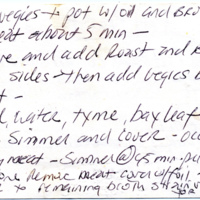 vegies → pot w/oil and Bro
eat about 5 min –
ve and add Roast and
sides – then add vegies b
t –
d, water, tyme, bay leaf
Simmer and cover – occ
meat – Simmer @ 45 min –
one Remove meat cover w/foil –
to remaining broth